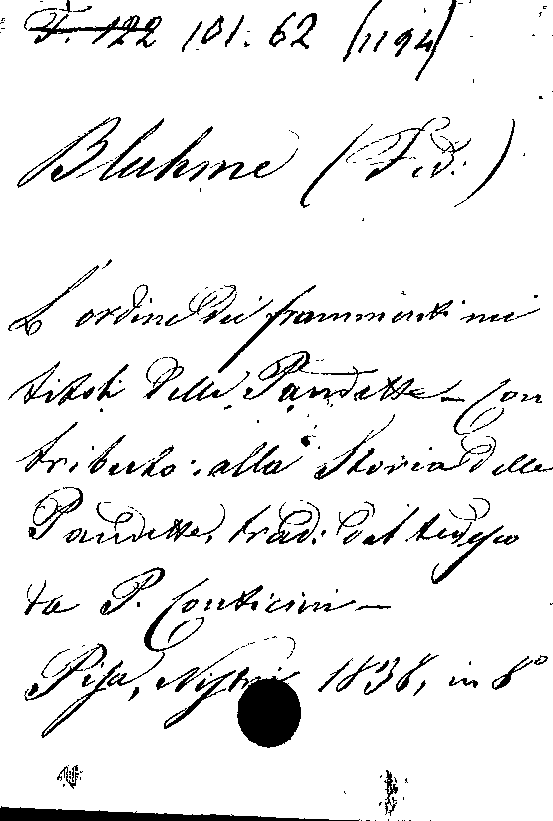 F. 122 101. 62 (1194)
Bluhme (Fed.)
L'ordine dei frammenti nei
titoli delle Pandette — Con
tributo alla Storia delle
Pandette, trad: dal tedesco
da P. Conticini —
Pisa, Nistri 1838, in 8º